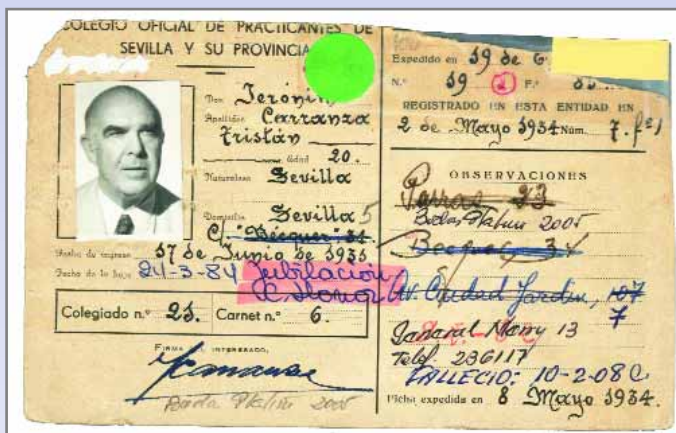 COLEGIO OFICIAL DE PRACTICANTES DE
SEVILLA Y SU PROVINCIA
Don Jerónim
Apellidos Carranza
Tristán
Edad 20.
Naturaleza Sevilla
Domicilio Sevilla 5
C/. "Bécquer" 34
Fecha de ingreso 17 de Junio de 1931
Fecha de la baja 24-3-84 Jubilación
C. Honor
Colegiado n.º 25. Carnet n.º 6.
FIRMA INTERESADO,
Boda Platin 2005
Expedido en 19 de
N.º 19 2 F.º
REGISTRADO EN ESTA ENTIDAD EN
2 de Mayo 1934 Núm. 7. fº 1
OBSERVACIONES
Parras 23
Bodas Platin 2005
Becquer 34
Av. Ciudad Jardin, 107
7
General Merry 13
Telf. 236117
FALLECIO: 10-2-08
Ficha expedida en 8 Mayo 1934.